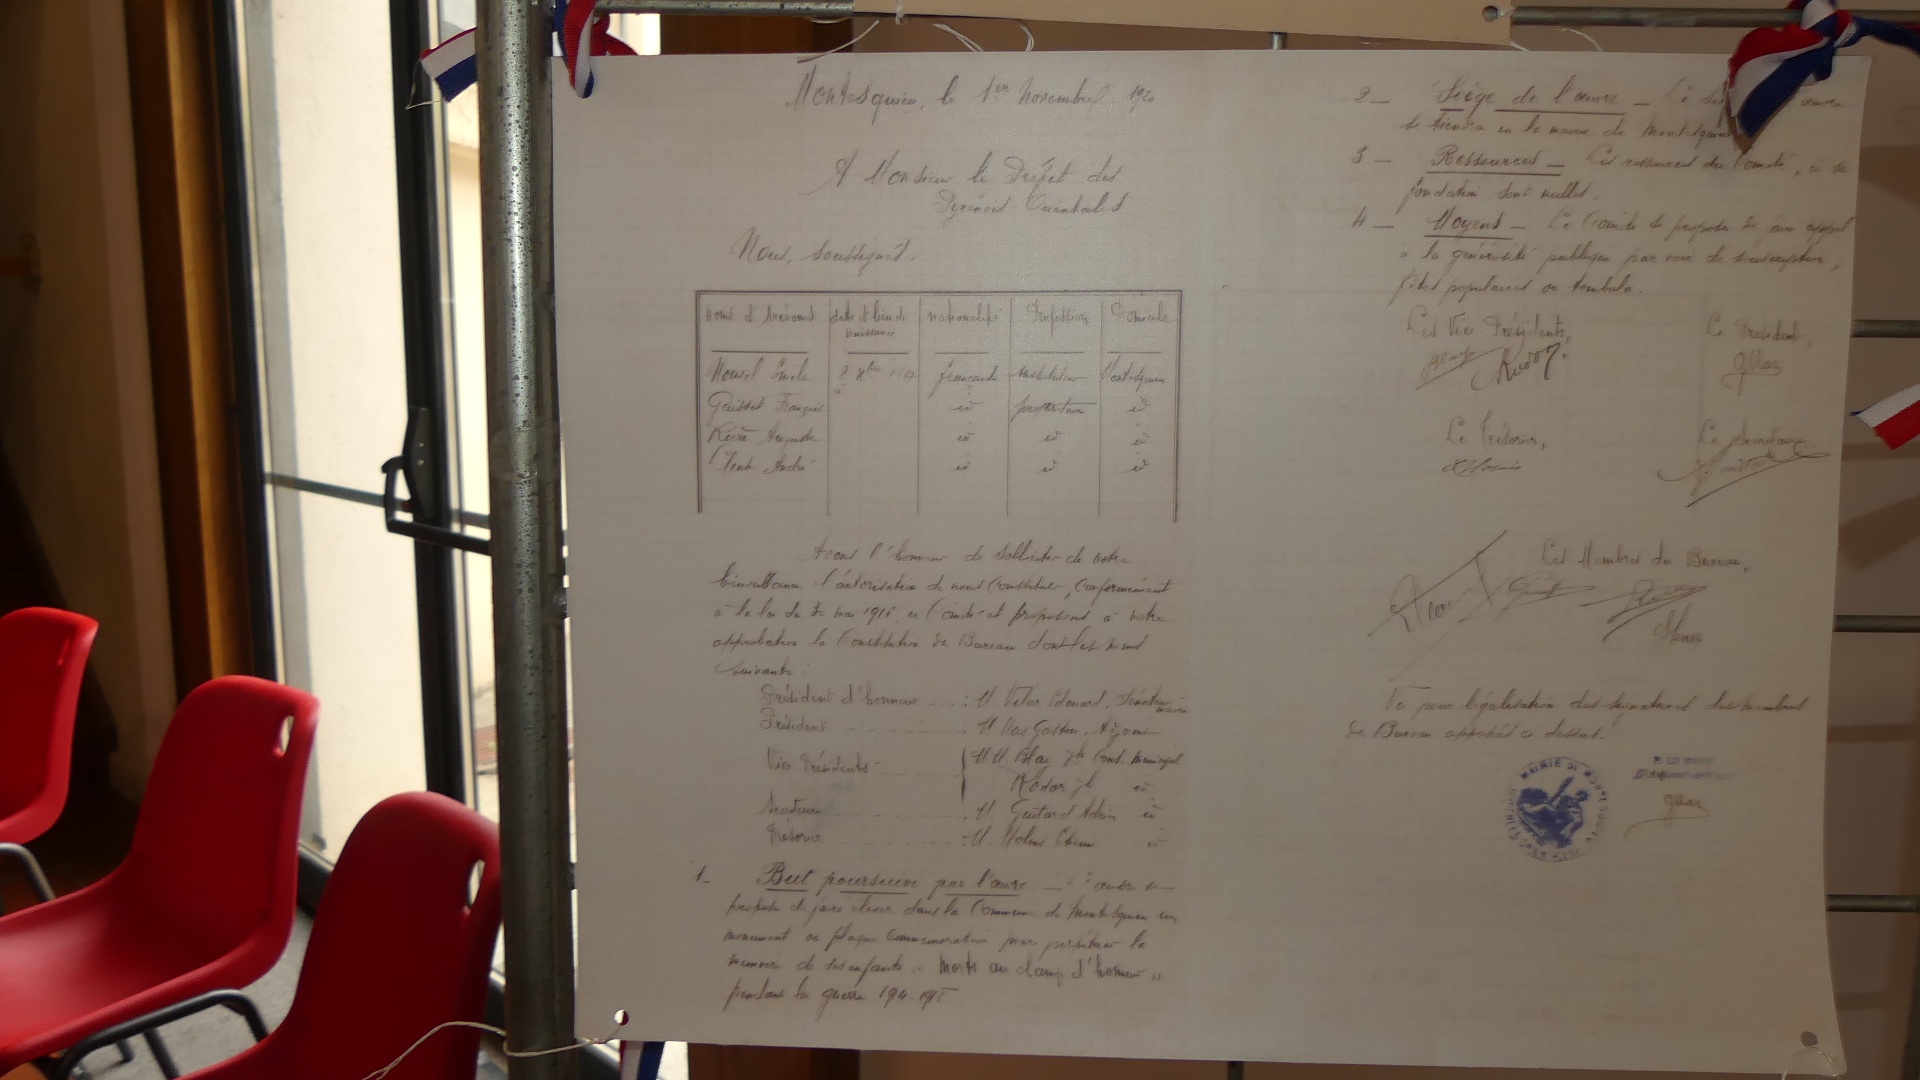 Montesquieu, le 1er novembre 1920
A Monsieur le Préfet des
Pyrénées Orientales
Nous, soussignés.
noms et prénoms date et lieu de naissance nationalité Profession Domicile
Nouvel Emile 2 française instituteur Montesquieu
François id propriétaire id
Auguste id id id
André id id id
Avons l'honneur de solliciter de votre
bienveillance l'autorisation de nous constituer, conformément
à la loi du mai 1916, en Comité et proposons à votre
approbation la Constitution de Bureau dont les noms
suivants :
Président d'honneur : M. Victor Edouard, Sénateur maire
Président : M. Mas Gaston, Adjoint
Vice Présidents M.M. Blay Cons. municipal
id
Secrétaire : M. Guitard Adrien id
Trésorier : M. Molins id
1_ But poursuivi par l'œuvre _ L'œuvre se
propose de faire élever dans la Commune de Montesquieu un
monument ou plaque commémorative pour perpétuer la
mémoire de ses enfants "Morts au champ d'honneur"
pendant la guerre 1914-1918
2_ Siège de l'œuvre _ Le œuvre
se tiendra en la mairie de Montesquieu
3_ Ressources _ Les ressources du Comité, à sa
fondation sont nulles.
4_ Moyens _ Le Comité se propose de faire appel
à la générosité publique par voie de souscription,
fêtes populaires ou tombola.
Les Vice-Présidents, Le Président,
GMas
Le Trésorier, Le Secrétaire
Les Membres du Bureau,
Vu pour légalisation des signatures des membres
de Bureau apposées ci dessus.
MAIRIE DE MONTESQUIEU
GMas